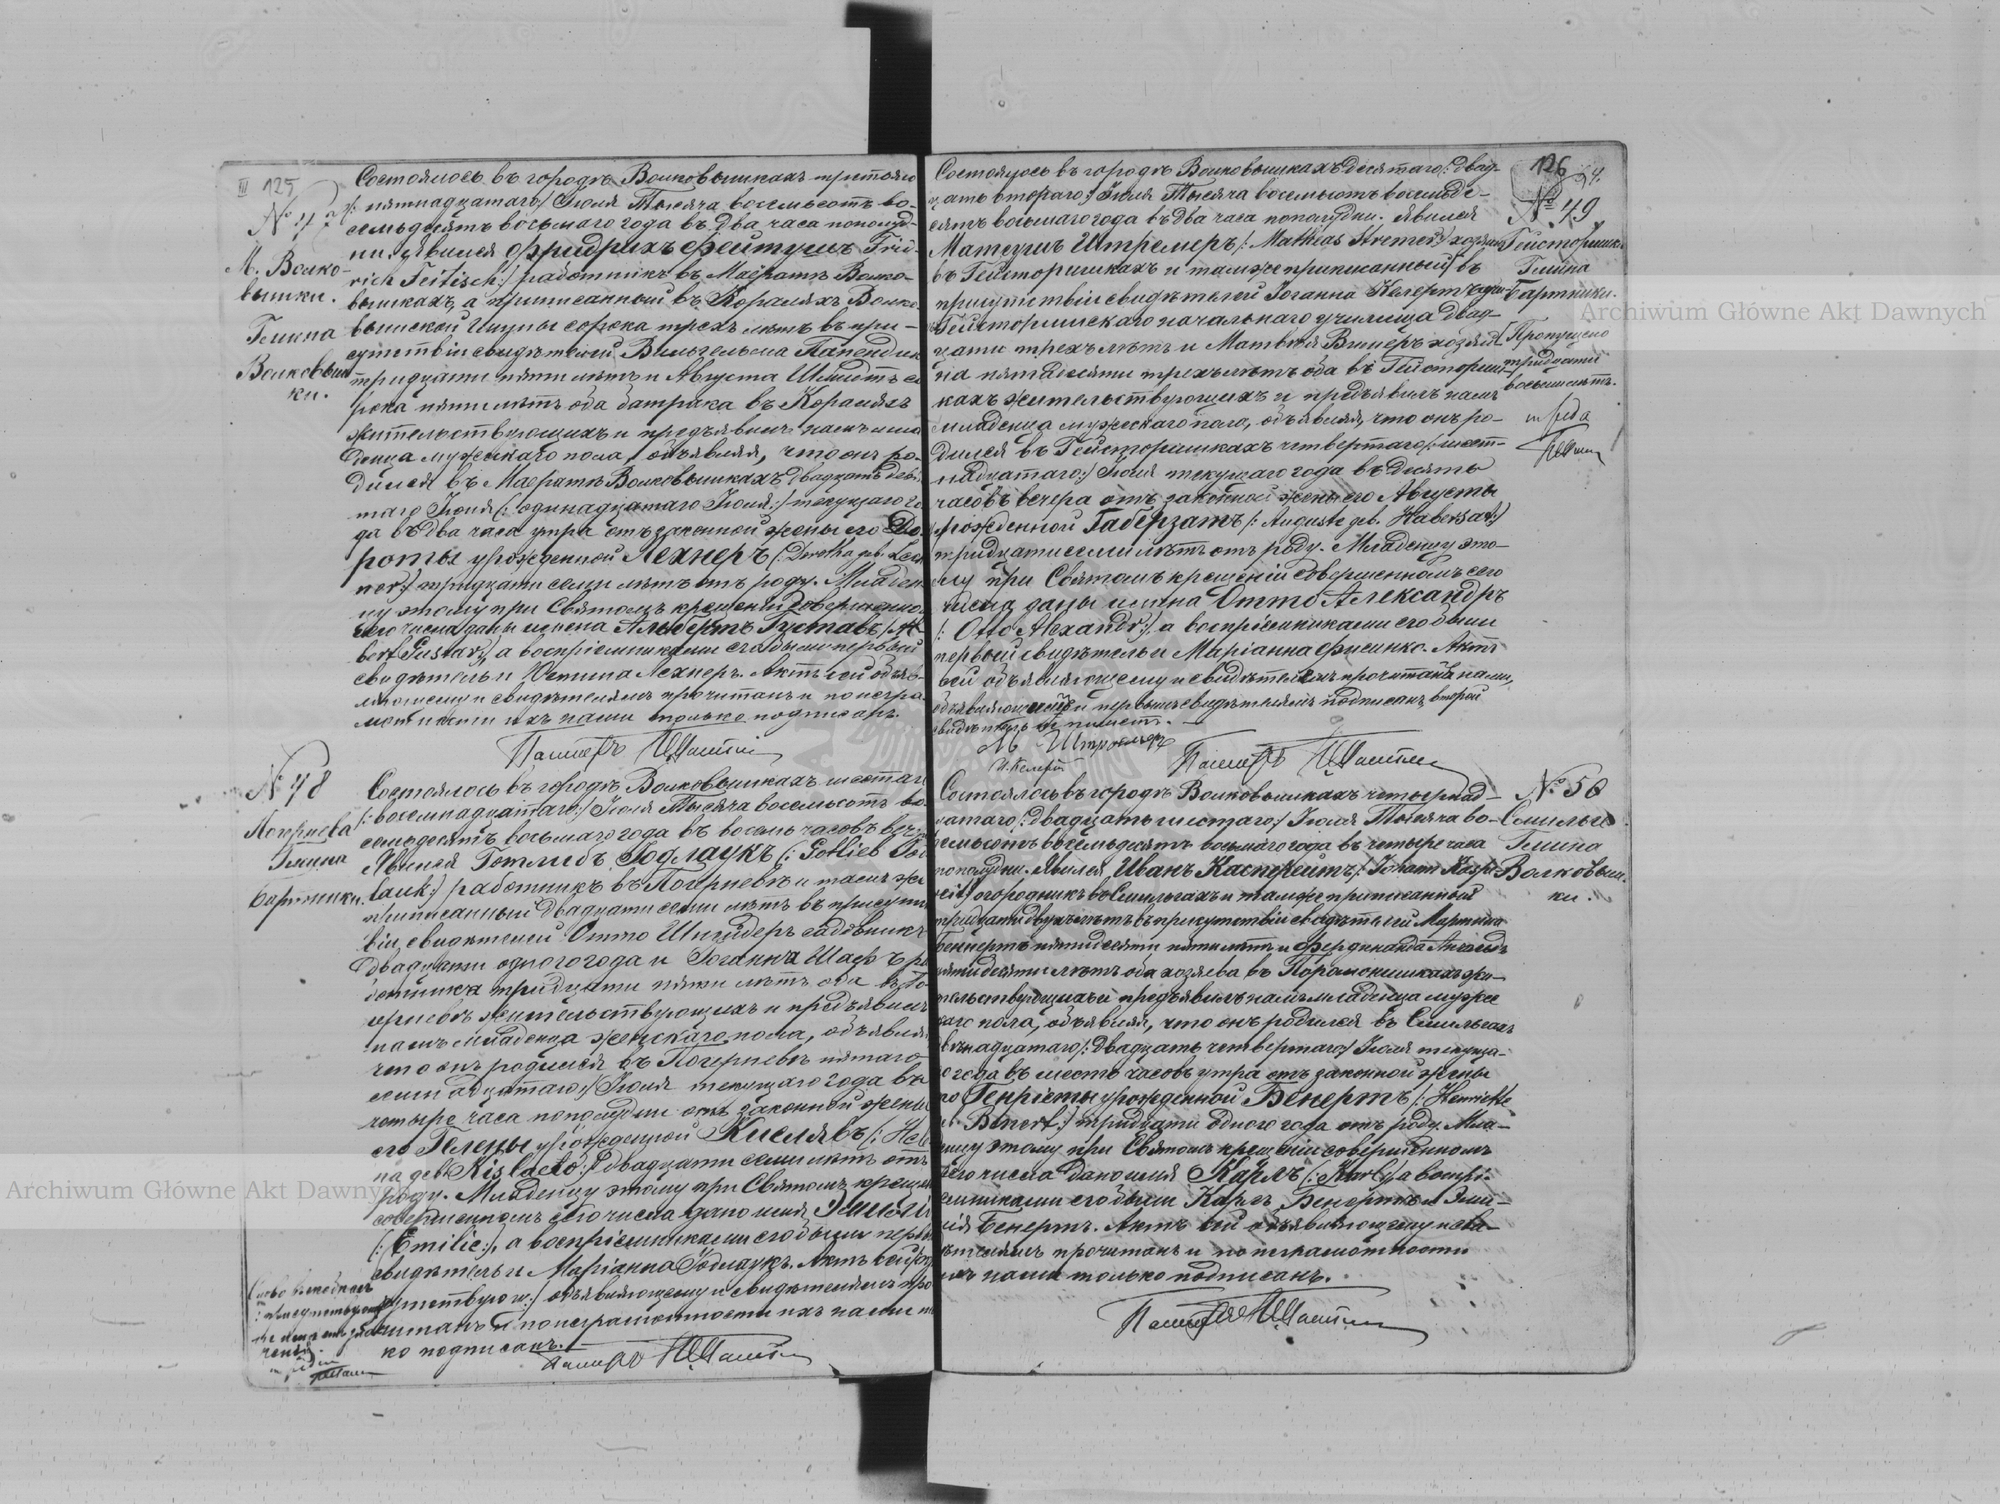 III 125
№ 47
М. Волко-
вышки.
Гмина
Волковыш
ки.
Состоялось въ городѣ Волковышкахъ третьяго
/: пятнадцатаго:/ Іюля Тысяча восемьсотъ во-
семьдесятъ восьмаго года въ два часа пополуд-
ни. явился Фридрихъ Фейтушъ Frid-
rich Feitisch:/ работникъ въ Маіратѣ Волко-
вышкахъ, а приписанный въ Кораляхъ Волко-
вышской Гмины сорока трехъ лѣтъ въ при-
сутствіи свидѣтелей Вильгельма Папендик
тридцати пяти лѣтъ и Августа Шмидтъ со
рока пяти лѣтъ оба батрака въ Коралях
жительствующихъ и предъявилъ намъ мла
денца мужескаго пола, объявляя, что онъ ро-
дился въ Маіратѣ Волковышкахъ двадцать девя
таго Іюня (: одинадцатаго Іюля:/ текущаго го
да въ два часа утра отъ законной жены его До
роты урожденной Лехнеръ (: Dorotha geb. Lech
ner:/ тридцати семи лѣтъ отъ роду. Младен
цу этому при Святомъ крещеніи совершенно
сего числа даны имена Альбертъ Густавъ /: Al
bert Gustav:/, а воспріемниками его были первый
свидѣтель и Лехнеръ. Актъ сей объяв
ляющему и свидѣтелямъ прочитанъ и по негра
мотности ихъ нами только подписанъ.
Пасторъ
№ 48
Погернева
Гмина
Бартники.
Состоялось въ городѣ Волковышкахъ шестаго
/: восемнадцатаго:/ Іюля Тысяча восемьсотъ во
семьдесятъ восьмаго года въ восемь часовъ веч
Явился Готлибъ Годлаукъ (: Gotlieb God
lauk:/ работникъ въ Погерневѣ и тамъ же
приписанный двадцати семи лѣтъ въ присутст
віи свидѣтелей Отто Шнейдеръ садовника
двадцати одного года и Іоганна Шафъ ра
ботника тридцати пяти лѣтъ оба въ По
герневѣ жительствующихъ и предъявилъ
намъ младенца женскаго пола, объявляя
что онъ родился въ Погерневѣ пятаго
семнадцатаго:/ Іюля текущаго года въ
четыре часа пополудни отъ законной жены
его Гелены урожденной Кислявъ (: Hele
na geb. двадцати семи лѣтъ отъ
роду. Младенцу этому при Святомъ крещен
совершенномъ сего числа дано имя Эмилія
(: Emilie:), а воспріемниками его были первый
свидѣтель и Маріанна Годлаукъ. Актъ сей
объявляющему и свидѣтелямъ про
читанъ и по неграмотности ихъ нами толь
ко подписанъ.
Пасторъ
126
№ 49
Гейсторишки
Гмина
Бартники.
Пропущено
тридцати
восьми лѣтъ.
Состоялось въ городѣ Волковышкахъ десятаго /: двад-
цать втораго:/ Іюля Тысяча восемьсотъ восемьде-
сятъ восьмаго года въ два часа пополудни. явился
Матеушъ Штремеръ (: Mathias Stremer:/ хозяин
въ Гейсторишкахъ и тамъ же приписанный въ
присутствіи свидѣтелей Іоганна Келертъ
Гейсторишскаго начальнаго училища двад-
цати трехъ лѣтъ и Матвѣя Винеръ хозяи
на пятидесяти трехъ лѣтъ оба въ Гейсториш-
кахъ жительствующихъ и предъявилъ намъ
младенца мужескаго пола, объявляя, что онъ ро-
дился въ Гейсторишкахъ четвертаго /: шест-
надцатаго:/ Іюля текущаго года въ девять
часовъ вечера отъ законной жены его Августы
урожденной Габерзатъ /: Auguste geb. Habersat:/
тридцати семи лѣтъ отъ роду. Младенцу это-
му при Святомъ крещеніи совершенномъ сего
числа даны имена Отто Александръ
/: Otto Alexandr:/ а воспріемниками его были
первый свидѣтель и Маріанна Фисинко. Актъ
сей объявляющему и свидѣтелямъ прочитанъ нами,
объявляющимъ и первымъ свидѣтелемъ подписанъ второй
свидѣтель не пишетъ.
М. Штремеръ
И. Келертъ
Пасторъ
№ 50
Смильге
Гмина
Волковыш
ки.
Состоялось въ городѣ Волковышкахъ четырнад-
цатаго /: двадцать шестаго:/ Іюля Тысяча во-
семьсотъ восемьдесятъ восьмаго года въ четыре часа
пополудни. Явился Иванъ Касперейтъ /: Johann Kaspe
reit:/ огородникъ въ Смильгахъ и тамже приписанный
тридцати двухъ лѣтъ въ присутствіи свидѣтелей Мартина
Бенертъ пятидесяти пяти лѣтъ и Фердинанда
пятидесяти лѣтъ оба хозяева въ Порамонишкахъ жи-
тельствующихъ и предъявилъ намъ младенца мужес
каго пола, объявляя, что онъ родился въ Смильгахъ
двѣнадцатаго /: двадцать четвертаго:/ Іюля текуща-
го года въ шесть часовъ утра отъ законной жены
его Генріеты урожденной Бенертъ (: Henriette
geb. Benert:/ тридцати одного года отъ роду. Мла-
денцу этому при Святомъ крещеніи совершенномъ
сего числа дано имя Карлъ (: Karl:), а воспрі-
емниками его были Карлъ Бенертъ и Эми-
лія Бенертъ. Актъ сей объявляющему и сви-
дѣтелямъ прочитанъ и по неграмотности
ихъ нами только подписанъ.
Пасторъ
Archiwum Główne Akt Dawnych
Archiwum Główne Akt Dawnych